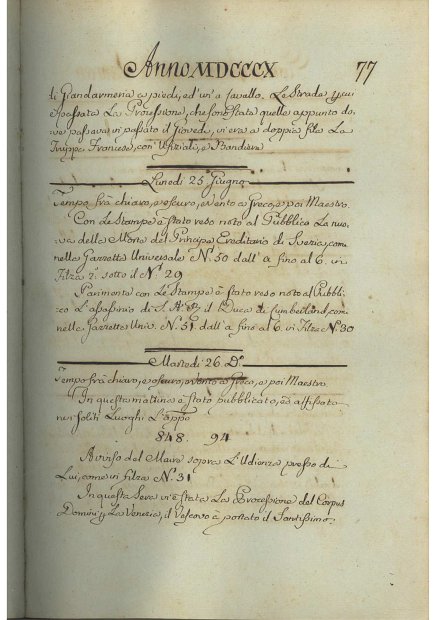 Anno MDCCCX 77
di Giandarmeria a piedi, ed un'a Cavallo. Le Strade p. cui
è passata La Processione, che sono state quelle appunto do-
ve passava in passato il Giovedì, vi era a doppia fila La
Truppa Francese, con Uffiziali, e Bandiera
Lunedì 25 Giugno
Tempo frà chiaro, e oscuro, e Vento a Greco, e poi Maestro.
Con Le Stampe è stato reso noto al Pubblico La nuo-
va della Morte del Principe Ereditario di Svezia, come
nelle Gazzette Universale N.º 50 dall' a fino al 6. in
Filza 2.ª sotto il N.º 29
Parimente con Le Stampe è stato reso noto al Pubbli-
co L'assassinio di S. A. R. il Duca di Cumberland, come
nelle Gazzette Univ. N.º 51. dall' a fino al 6. in Filza N.º 30
Martedì 26 D.º
Tempo frà chiaro, e oscuro, e Vento a Greco, e poi Maestro
In questa mattina è stato pubblicato, ed affissato
nei soliti Luoghi L'app.º
848. 94
Avviso del Maire sopra L'Udienza presso di
Lui, come in filza N.º 31
In questa Sera vi è stata La Processione del Corpus
Domini p. La Venezia, il Vescovo à portato il Santissimo.